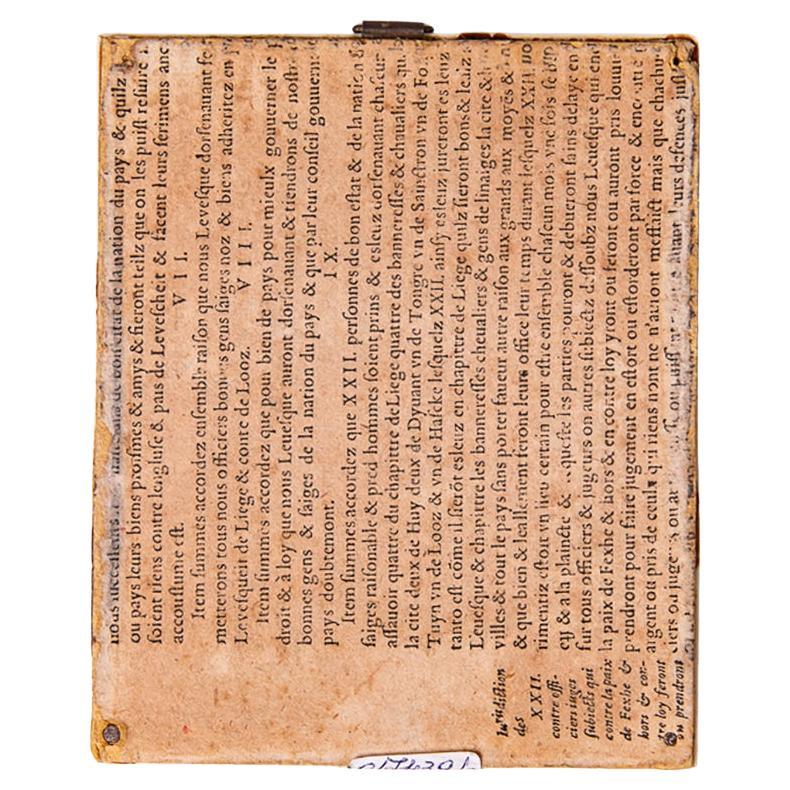 nous successeurs
ou pays leurs biens prosmes & amys & sieront tellz que on les puist refuire
soient riens contre lengluse & pais de Levescheit & facent leurs serimens anc
accoustume est.
VII.
Item summes accordez ensemble raison que nous Levesque dorsenauant
metterons tous nous officiers bonnes gens saiges noz & biens adheritez en
Levesqueit de Liege & conte de Looz.
VIII.
Item summes accordez que pour bien de pays pour mieulx gouuerner le
droit & à loy que nous Leuesque auront dorsenauant & tiendrons de nostre
bonnes gens & saiges de la nation du pays & que par leur conseil gouuerne
pays doubtrement.
IX.
Item summes accordez que XXII. personnes de bon estat & de la nation
saiges raisonable & pred hommes soient prins & esleuz dorsenauant chascur
assauoir quatre du chapittre de Liege quattre des banneresses & chaualiers qu
la cite deux de Huy deux de Dyuant vn de Tongre vn de Sainctron vn de Fo
Tuyn vn de Looz & vn de Hascke lesquelz XXII. ainsy esleuz iureront es leuz
tanto est cóme il seröt esleuz en chapittre de Liege qu'ilz sieront bons & leaiz
Leuesque & chapittre les bannereſſes cheualiers & gens de linaiges la cite &
villes & tout le pays sans porter faueur autre raison aux grands aux moyés &
& que bien & leallement feront leurs office leur temps durant lesquelz XXII.
rimentiz estout vn lieu certain pour estre ensemble chascun mois vne fois
& a la plaincte & queste les parties pouront & debueront sains dilaye en
sur tous officiers & jugeurs on autres subiectz dessoubz nous Leuesque qui en
la paix de Fexhe & hors & en contre loy yront ou feront ou auront pris louir
prendront pour faire jugement en essort ou essorderont par force &
argent ou pris de ceulx qui riens nont ne n'auront messaict mais que chacun
ciers ou juge leurs defences
Iurisdiction
des
XXII.
contre offi-
ciers iuges
subiects qui
contre la paix
de Fexhe &
hors & con-
tre loy feront
ou prendront